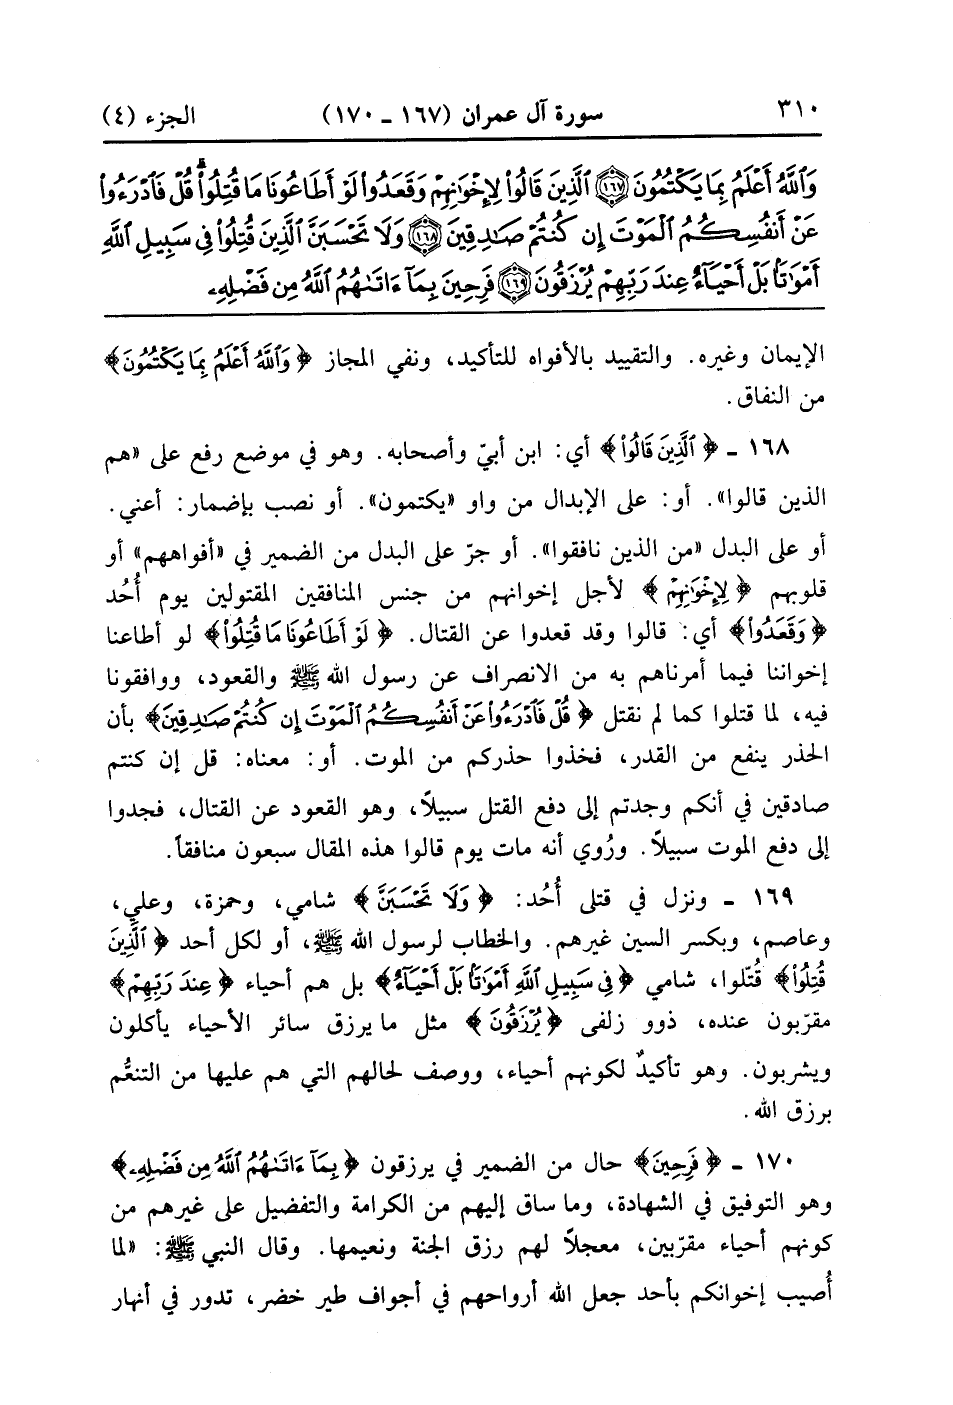 ٣١٠ سورة آل عمران (١٦٧ ـ ١٧٠) الجزء (٤)
وَاللَّهُ أَعْلَمُ بِمَا يَكْتُمُونَ ١٦٧ الَّذِينَ قَالُوا لِإِخْوَانِهِمْ وَقَعَدُوا لَوْ أَطَاعُونَا مَا قُتِلُوا ۗ قُلْ فَادْرَءُوا
عَنْ أَنفُسِكُمُ الْمَوْتَ إِن كُنتُمْ صَادِقِينَ ١٦٨ وَلَا تَحْسَبَنَّ الَّذِينَ قُتِلُوا فِي سَبِيلِ اللَّهِ
أَمْوَاتًا بَلْ أَحْيَاءٌ عِندَ رَبِّهِمْ يُرْزَقُونَ ١٦٩ فَرِحِينَ بِمَا ءَاتَاهُمُ اللَّهُ مِن فَضْلِهِ
الإيمان وغيره. والتقييد بالأفواه للتأكيد، ونفي المجاز ﴿وَاللَّهُ أَعْلَمُ بِمَا يَكْتُمُونَ﴾
من النفاق.
١٦٨ ـ ﴿الَّذِينَ قَالُوا﴾ أي: ابن أبيّ وأصحابه. وهو في موضع رفع على «هم
الذين قالوا». أو: على الإبدال من واو «يكتمون». أو نصب بإضمار: أعني.
أو على البدل «من الذين نافقوا». أو جرّ على البدل من الضمير في «أفواههم» أو
قلوبهم ﴿لِإِخْوَانِهِمْ﴾ لأجل إخوانهم من جنس المنافقين المقتولين يوم أُحُد
﴿وَقَعَدُوا﴾ أي: قالوا وقد قعدوا عن القتال. ﴿لَوْ أَطَاعُونَا مَا قُتِلُوا﴾ لو أطاعنا
إخواننا فيما أمرناهم به من الانصراف عن رسول الله ﷺ والقعود، ووافقونا
فيه، لما قتلوا كما لم نقتل ﴿قُلْ فَادْرَءُوا عَنْ أَنفُسِكُمُ الْمَوْتَ إِن كُنتُمْ صَادِقِينَ﴾ بأن
الحذر ينفع من القدر، فخذوا حذركم من الموت. أو: معناه: قل إن كنتم
صادقين في أنكم وجدتم إلى دفع القتل سبيلاً، وهو القعود عن القتال، فجدوا
إلى دفع الموت سبيلاً. ورُوي أنه مات يوم قالوا هذه المقال سبعون منافقاً.
١٦٩ ـ ونزل في قتلى أُحُد: ﴿وَلَا تَحْسَبَنَّ﴾ شامي، وحمزة، وعلي،
وعاصم، وبكسر السين غيرهم. والخطاب لرسول الله ﷺ، أو لكل أحد ﴿الَّذِينَ
قُتِلُوا﴾ قُتّلوا، شامي ﴿فِي سَبِيلِ اللَّهِ أَمْوَاتًا بَلْ أَحْيَاءٌ﴾ بل هم أحياء ﴿عِندَ رَبِّهِمْ﴾
مقرّبون عنده، ذوو زلفى ﴿يُرْزَقُونَ﴾ مثل ما يرزق سائر الأحياء يأكلون
ويشربون. وهو تأكيدٌ لكونهم أحياء، ووصف لحالهم التي هم عليها من التنعُّم
برزق الله.
١٧٠ ـ ﴿فَرِحِينَ﴾ حال من الضمير في يرزقون ﴿بِمَا ءَاتَاهُمُ اللَّهُ مِن فَضْلِهِ﴾
وهو التوفيق في الشهادة، وما ساق إليهم من الكرامة والتفضيل على غيرهم من
كونهم أحياء مقرّبين، معجلاً لهم رزق الجنة ونعيمها. وقال النبي ﷺ: «لما
أُصيب إخوانكم بأحد جعل الله أرواحهم في أجواف طير خضر، تدور في أنهار